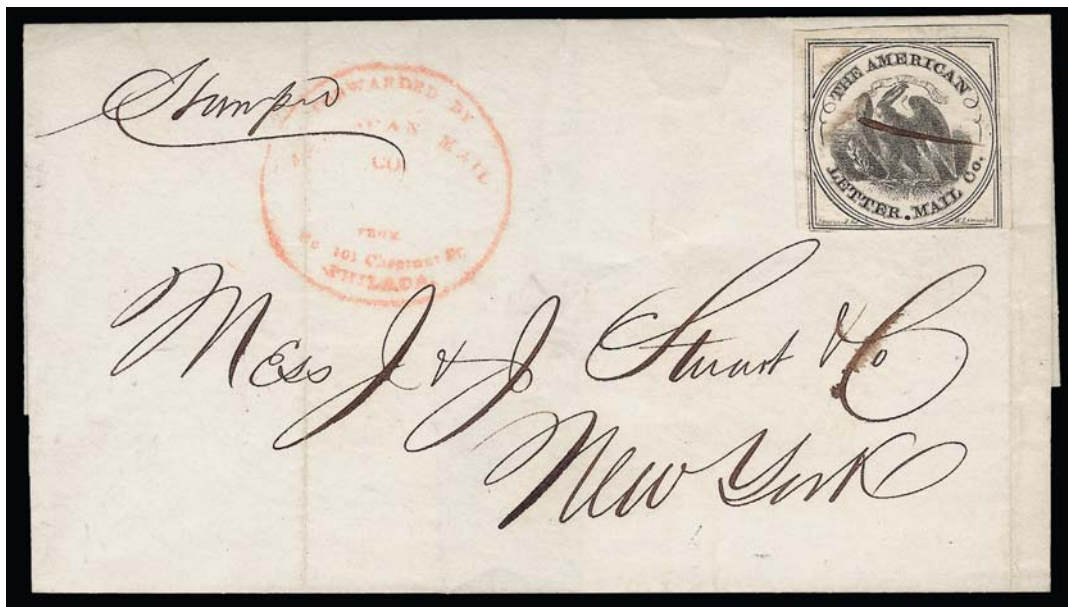 Stamped
FORWARDED BY
AMERICAN MAIL
CO.
FROM
No 101 Chestnut St.
PHILADA.
THE AMERICAN
LETTER.MAIL Co.
Mess J & J Stuart & Co
New York